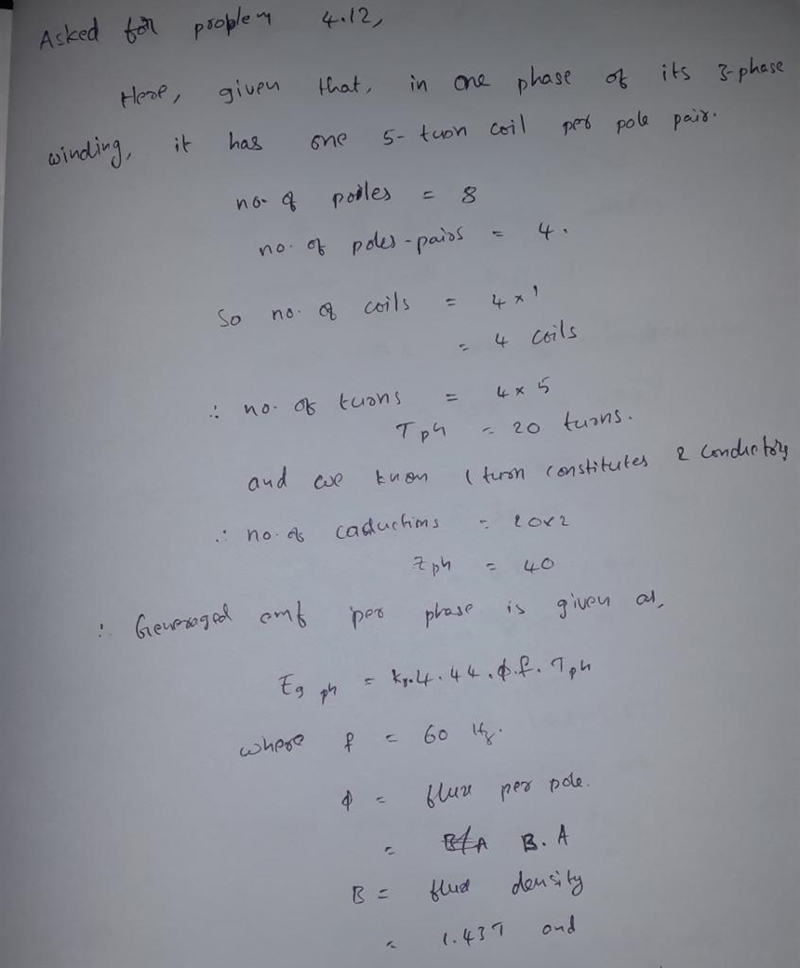 Asked for problem 4.12,
Here, given that, in one phase of its 3-phase
winding, it has one 5-turn coil per pole pair.
no. of poles = 8
no. of poles-pairs = 4.
So no. of coils = 4 x 1
= 4 coils
∴ no. of turns = 4 x 5
Tph = 20 turns.
and we know 1 turn constitutes 2 conductors
∴ no. of = 20x2
Zph = 40
∴ Generaged emf per phase is given as,
Eg ph = 4.44.ϕ.f.Tph
where f = 60 Hz.
ϕ = flux per pole.
= B.A
B = flux density
= 1.43T and